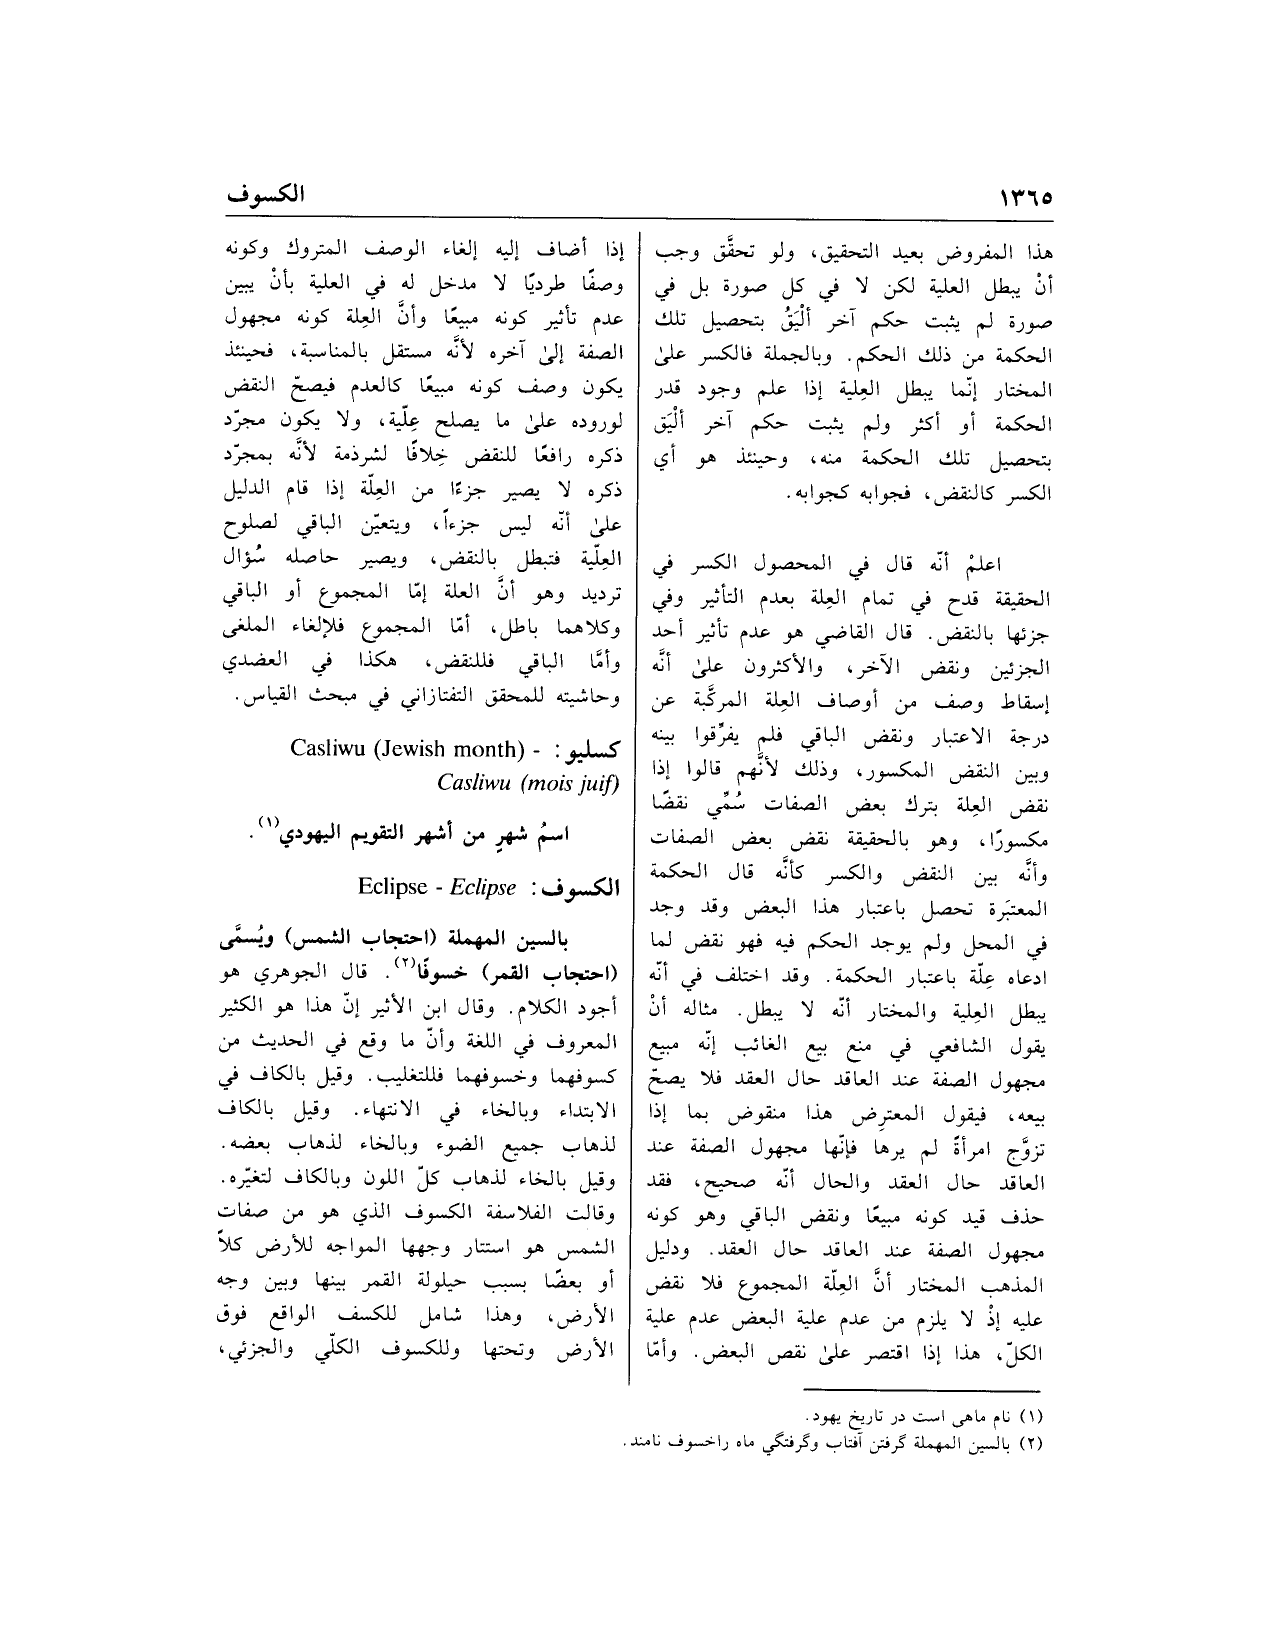 ١٣٦٥
الكسوف
هذا المفروض بعيد التحقيق، ولو تحقَّق وجب
أنْ يبطل العلية لكن لا في كل صورة بل في
صورة لم يثبت حكم آخر ألْيَقُ بتحصيل تلك
الحكمة من ذلك الحكم. وبالجملة فالكسر علىٰ
المختار إنّما يبطل العِلية إذا علم وجود قدر
الحكمة أو أكثر ولم يثبت حكم آخر ألْيَق
بتحصيل تلك الحكمة منه، وحينئذ هو أي
الكسر كالنقض، فجوابه كجوابه.
اعلمْ أنّه قال في المحصول الكسر في
الحقيقة قدح في تمام العِلة بعدم التأثير وفي
جزئها بالنقض. قال القاضي هو عدم تأثير أحد
الجزئين ونقض الآخر، والأكثرون علىٰ أنَّه
إسقاط وصف من أوصاف العِلة المركَّبة عن
درجة الاعتبار ونقض الباقي فلم يفرِّقوا بينه
وبين النقض المكسور، وذلك لأنَّهم قالوا إذا
نقض العِلة بترك بعض الصفات سُمِّي نقضًا
مكسورًا، وهو بالحقيقة نقض بعض الصفات
وأنَّه بين النقض والكسر كأنَّه قال الحكمة
المعتبَرة تحصل باعتبار هذا البعض وقد وجد
في المحل ولم يوجد الحكم فيه فهو نقض لما
ادعاه عِلّة باعتبار الحكمة. وقد اختلف في أنّه
يبطل العِلية والمختار أنّه لا يبطل. مثاله أنْ
يقول الشافعي في منع بيع الغائب إنّه مبيع
مجهول الصفة عند العاقد حال العقد فلا يصحّ
بيعه، فيقول المعترِض هذا منقوض بما إذا
تزوَّج امرأةً لم يرها فإنّها مجهول الصفة عند
العاقد حال العقد والحال أنّه صحيح، فقد
حذف قيد كونه مبيعًا ونقض الباقي وهو كونه
مجهول الصفة عند العاقد حال العقد. ودليل
المذهب المختار أنَّ العِلّة المجموع فلا نقض
عليه إذْ لا يلزم من عدم علية البعض عدم علية
الكلّ، هذا إذا اقتصر علىٰ نقص البعض. وأمّا
إذا أضاف إليه إلغاء الوصف المتروك وكونه
وصفًا طرديًا لا مدخل له في العلية بأنْ يبين
عدم تأثير كونه مبيعًا وأنَّ العِلة كونه مجهول
الصفة إلىٰ آخره لأنَّه مستقل بالمناسبة، فحينئذ
يكون وصف كونه مبيعًا كالعدم فيصحّ النقض
لوروده علىٰ ما يصلح عِلّية، ولا يكون مجرّد
ذكره رافعًا للنقض خِلافًا لشرذمة لأنَّه بمجرّد
ذكره لا يصير جزءًا من العِلّة إذا قام الدليل
علىٰ أنّه ليس جزءاً، ويتعيّن الباقي لصلوح
العِلّية فتبطل بالنقض، ويصير حاصله سُؤال
ترديد وهو أنَّ العلة إمّا المجموع أو الباقي
وكلاهما باطل، أمّا المجموع فلإلغاء الملغى
وأمَّا الباقي فللنقض، هكذا في العضدي
وحاشيته للمحقق التفتازاني في مبحث القياس.
كسليو: Casliwu (Jewish month) -
Casliwu (mois juif)
اسمُ شهرٍ من أشهر التقويم اليهودي(١).
الكسوف: Eclipse - Eclipse
بالسين المهملة (احتجاب الشمس) ويُسمَّى
(احتجاب القمر) خسوفًا(٢). قال الجوهري هو
أجود الكلام. وقال ابن الأثير إنّ هذا هو الكثير
المعروف في اللغة وأنّ ما وقع في الحديث من
كسوفهما وخسوفهما فللتغليب. وقيل بالكاف في
الابتداء وبالخاء في الانتهاء. وقيل بالكاف
لذهاب جميع الضوء وبالخاء لذهاب بعضه.
وقيل بالخاء لذهاب كلّ اللون وبالكاف لتغيّره.
وقالت الفلاسفة الكسوف الذي هو من صفات
الشمس هو استتار وجهها المواجه للأرض كلاً
أو بعضًا بسبب حيلولة القمر بينها وبين وجه
الأرض، وهذا شامل للكسف الواقع فوق
الأرض وتحتها وللكسوف الكلّي والجزئي،
(١) نام ماهى است در تاريخ يهود.
(٢) بالسين المهملة گرفتن آفتاب وگرفتگي ماه راخسوف نامند.